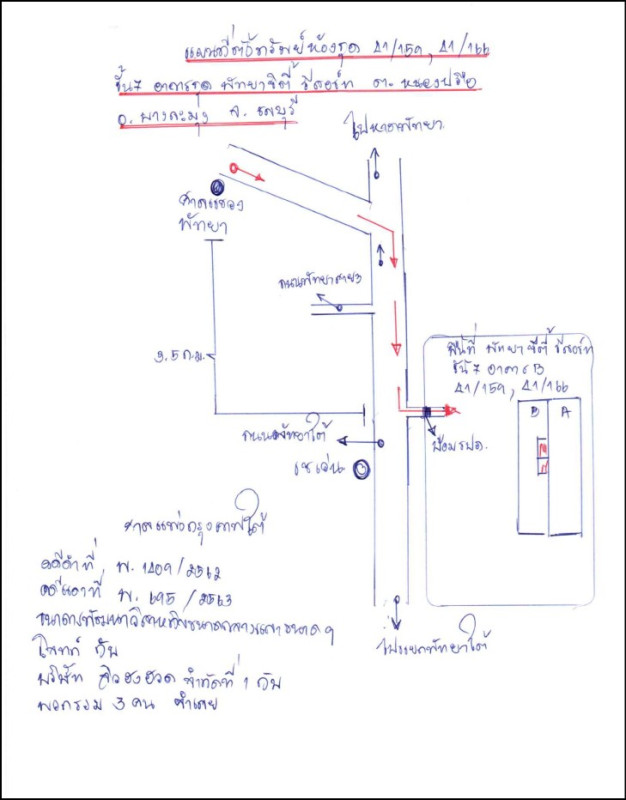 แผนที่ตั้งทรัพย์ห้องชุด 41/159, 41/166
ชั้น 7 อาคารชุด พัทยาซิตี้ รีสอร์ท ต. หนองปรือ
อ. บางละมุง จ. ชลบุรี
ไปหาดพัทยา
ศาลแขวง
พัทยา
ถนนพัทยาสาย 3
3.5 ก.ม.
พื้นที่ พัทยาซิตี้ รีสอร์ท
ชั้น 7 อาคาร B
41/159, 41/166
B A
ป้อม รปภ.
ถนนพัทยาใต้
เซเว่น
ศาลแพ่งกรุงเทพใต้
คดีดำที่ พ. 1409/2562
คดีแดงที่ พ. 695/2563
ธนาคารพัฒนาวิสาหกิจขนาดกลางและขนาดฯ
โจทก์ กับ
บริษัท จำกัด ที่ 1 กับ
พวกรวม 3 คน จำเลย
ไปแยกพัทยาใต้